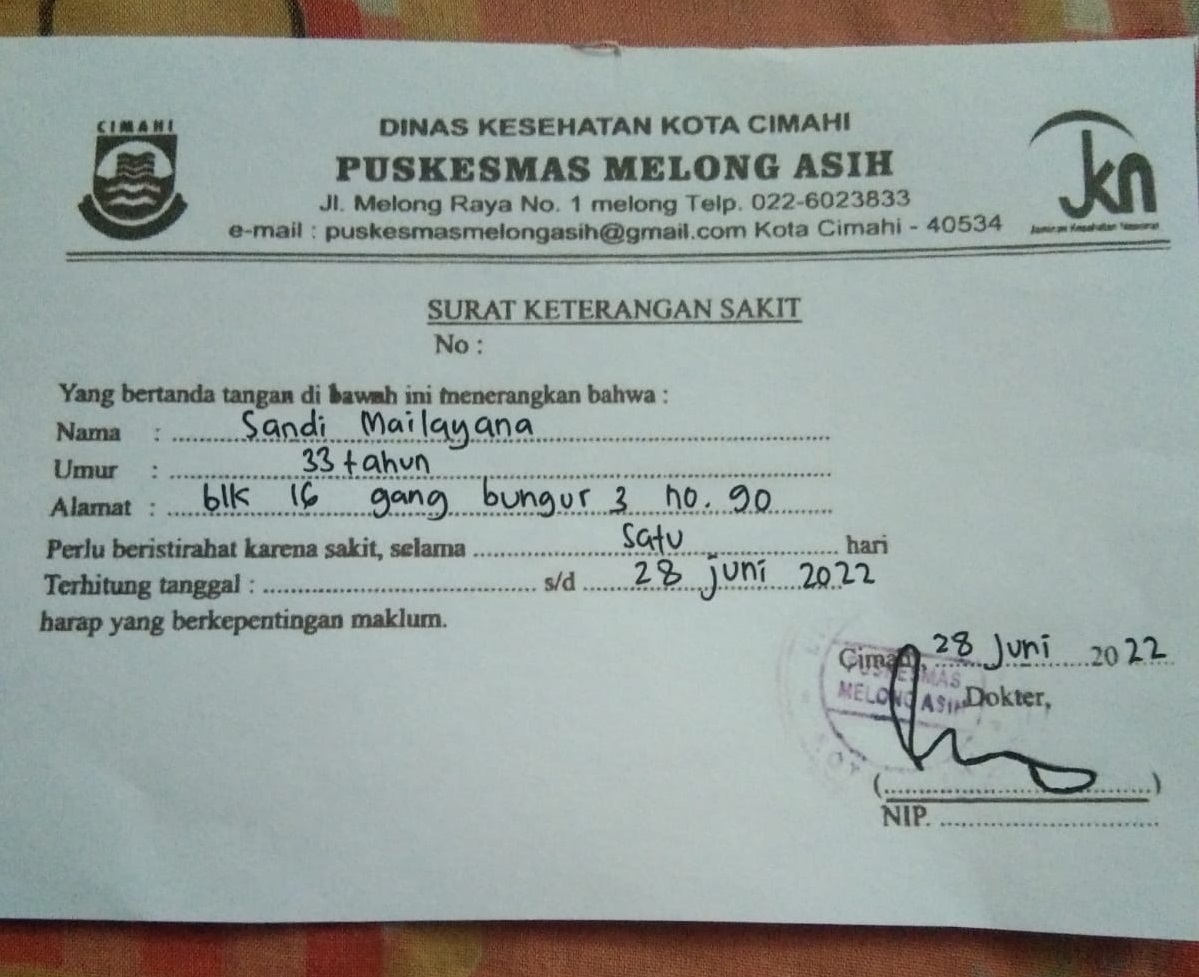 CIMAHI
DINAS KESEHATAN KOTA CIMAHI
PUSKESMAS MELONG ASIH
Jl. Melong Raya No. 1 melong Telp. 022-6023833
e-mail : puskesmasmelongasih@gmail.com Kota Cimahi - 40534
Jkn
Jaminan Kesehatan Nasional
SURAT KETERANGAN SAKIT
No :
Yang bertanda tangan di bawah ini menerangkan bahwa :
Nama : Sandi Mailayana
Umur : 33 tahun
Alamat : blk 16 gang bungur 3 no. 90
Perlu beristirahat karena sakit, selama satu hari
Terhitung tanggal : ........ s/d 28 juni 2022
harap yang berkepentingan maklum.
Cimahi, 28 Juni 2022
PUSKESMAS
MELONG ASIH
Dokter,
(........)
NIP. ........